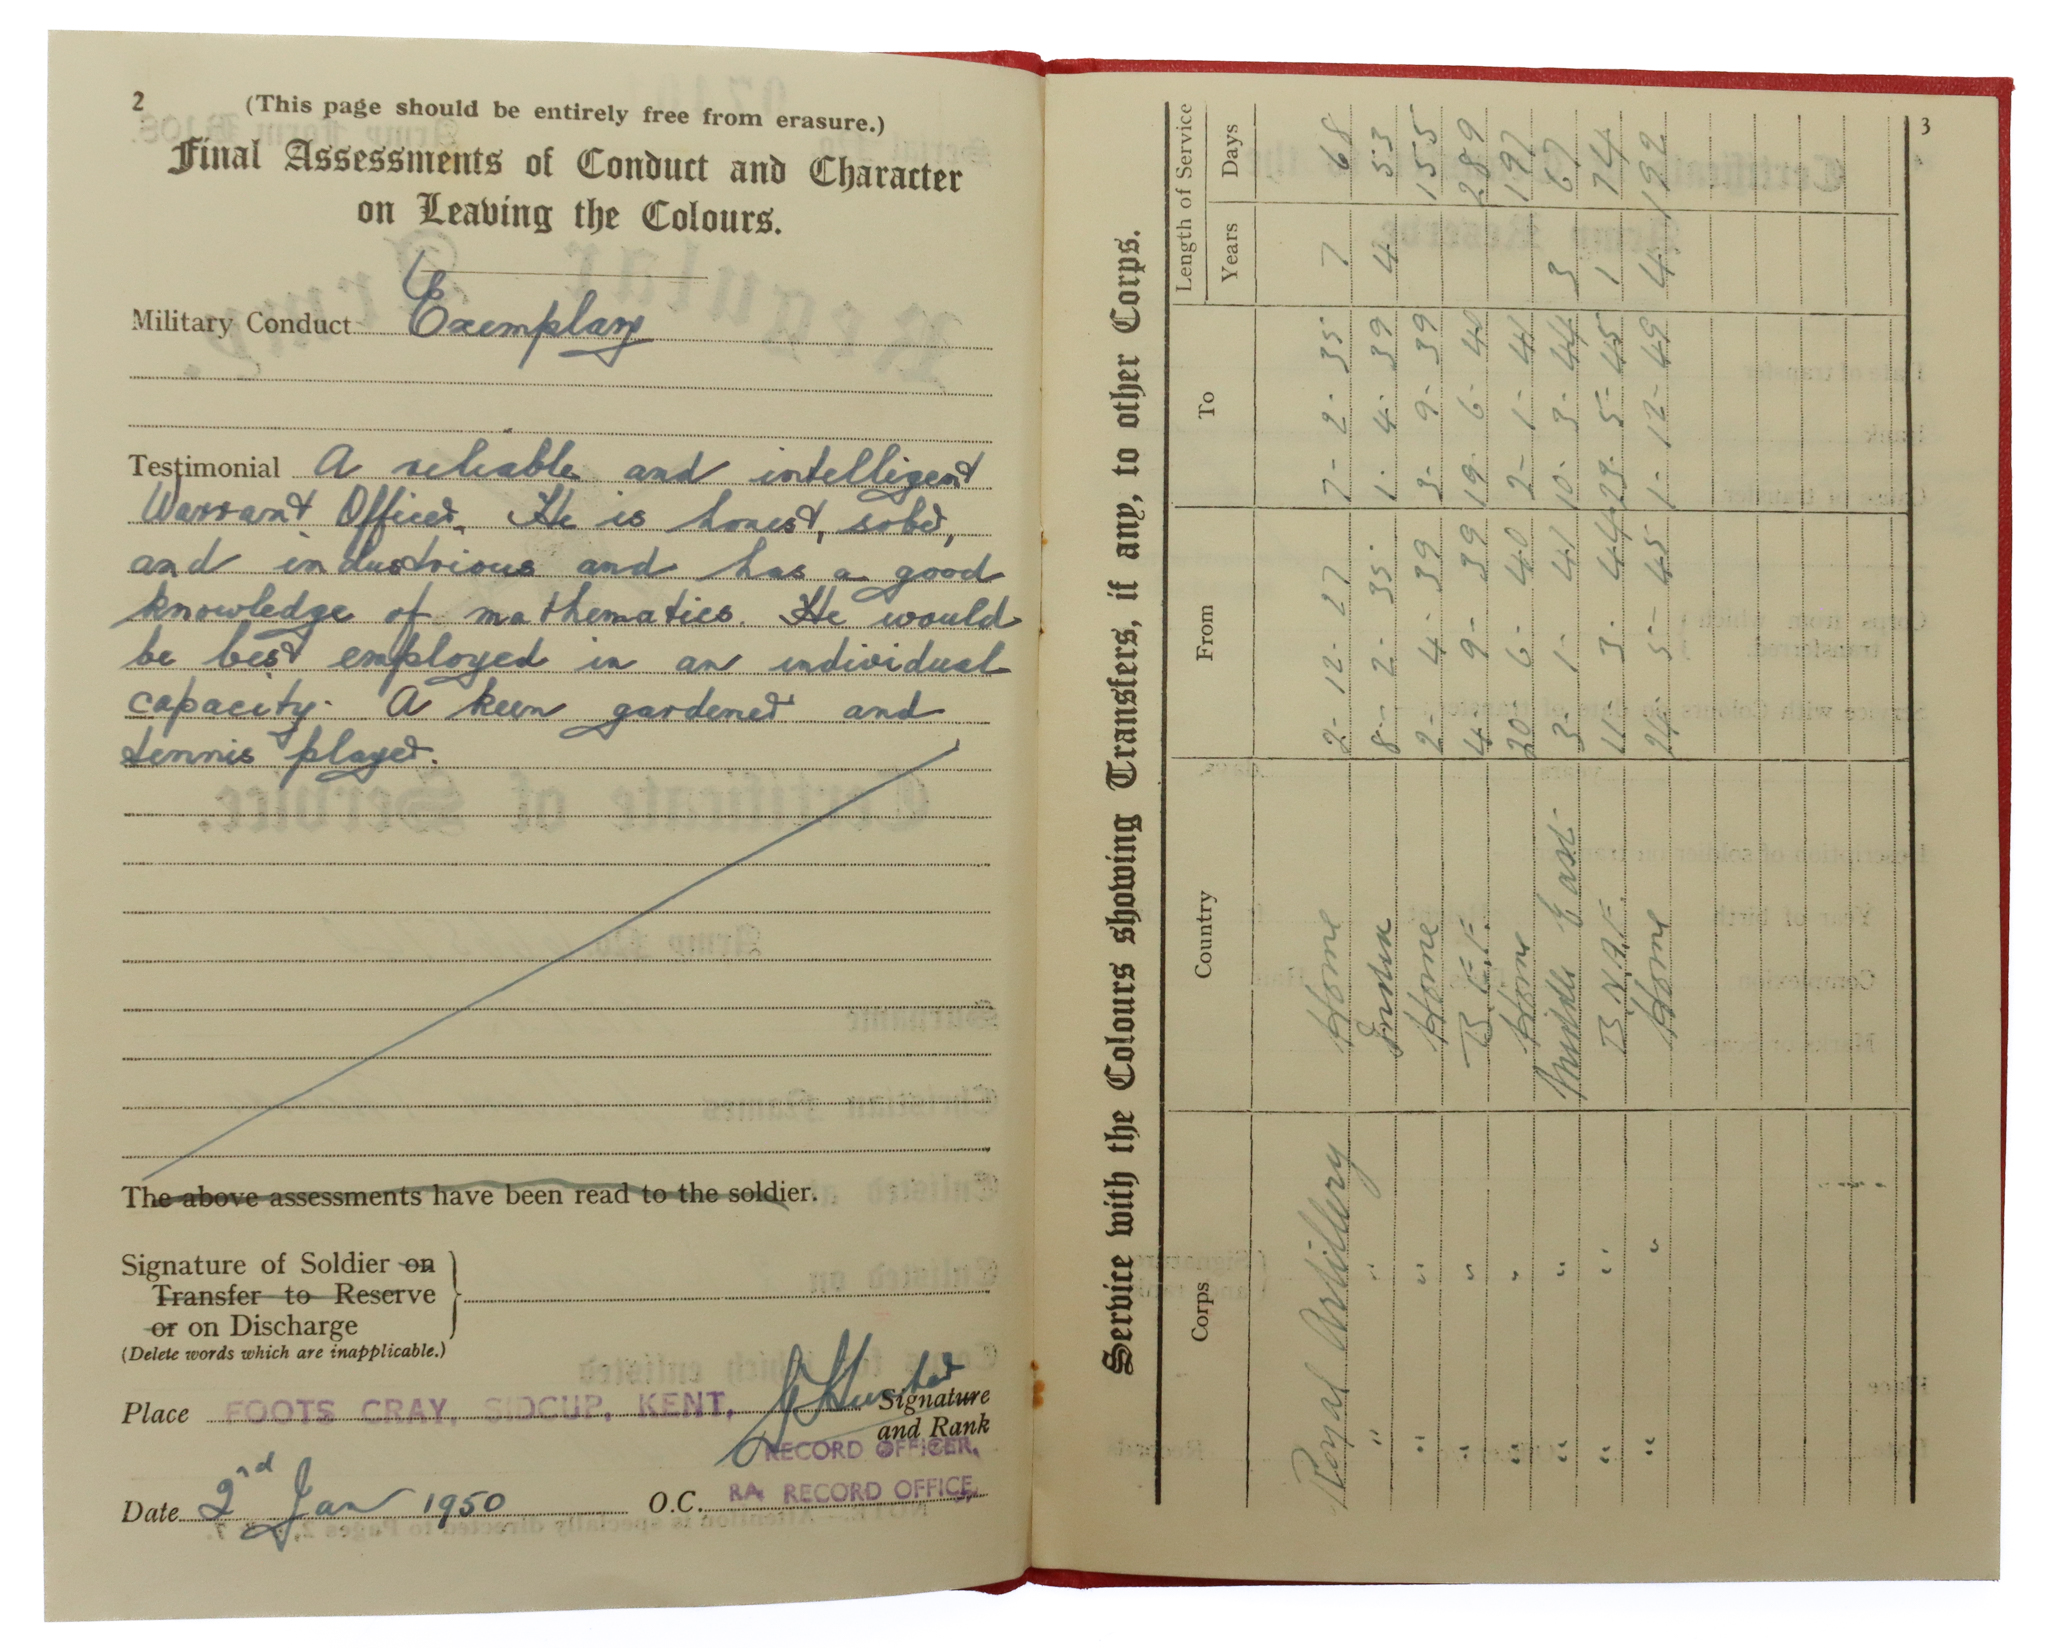 2
(This page should be entirely free from erasure.)
Final Assessments of Conduct and Character
on Leaving the Colours.
Military Conduct Exemplary
Testimonial A reliable and intelligent
Warrant Officer. He is honest, sober,
and industrious and has a good
knowledge of mathematics. He would
be best employed in an individual
capacity. A keen gardener and
tennis player.
The above assessments have been read to the soldier.
Signature of Soldier on
Transfer to Reserve
or on Discharge
(Delete words which are inapplicable.)
Place FOOTS CRAY, SIDCUP, KENT. Signature
and Rank
RECORD OFFICER,
Date 2nd Jan 1950 O.C. RA RECORD OFFICE,
3
Service with the Colours showing Transfers, if any, to other Corps.
Corps Country From To Length of Service
Years Days
Royal Artillery Home 2- 12- 27 7- 2- 35 7 68
" " India 8- 2- 35 1- 4- 39 4 53
" " Home 2- 4- 39 3- 9- 39 155
" " B.E.F. 4- 9- 39 19- 6- 40 289
" " Home 20- 6- 40 2- 1- 41 197
" " Middle East 3- 1- 41 10- 3- 44 3 67
" " B.N.A.F. 11- 3- 44 23- 5- 45 1 74
" " Home 24- 5- 45 1- 12- 49 4 192